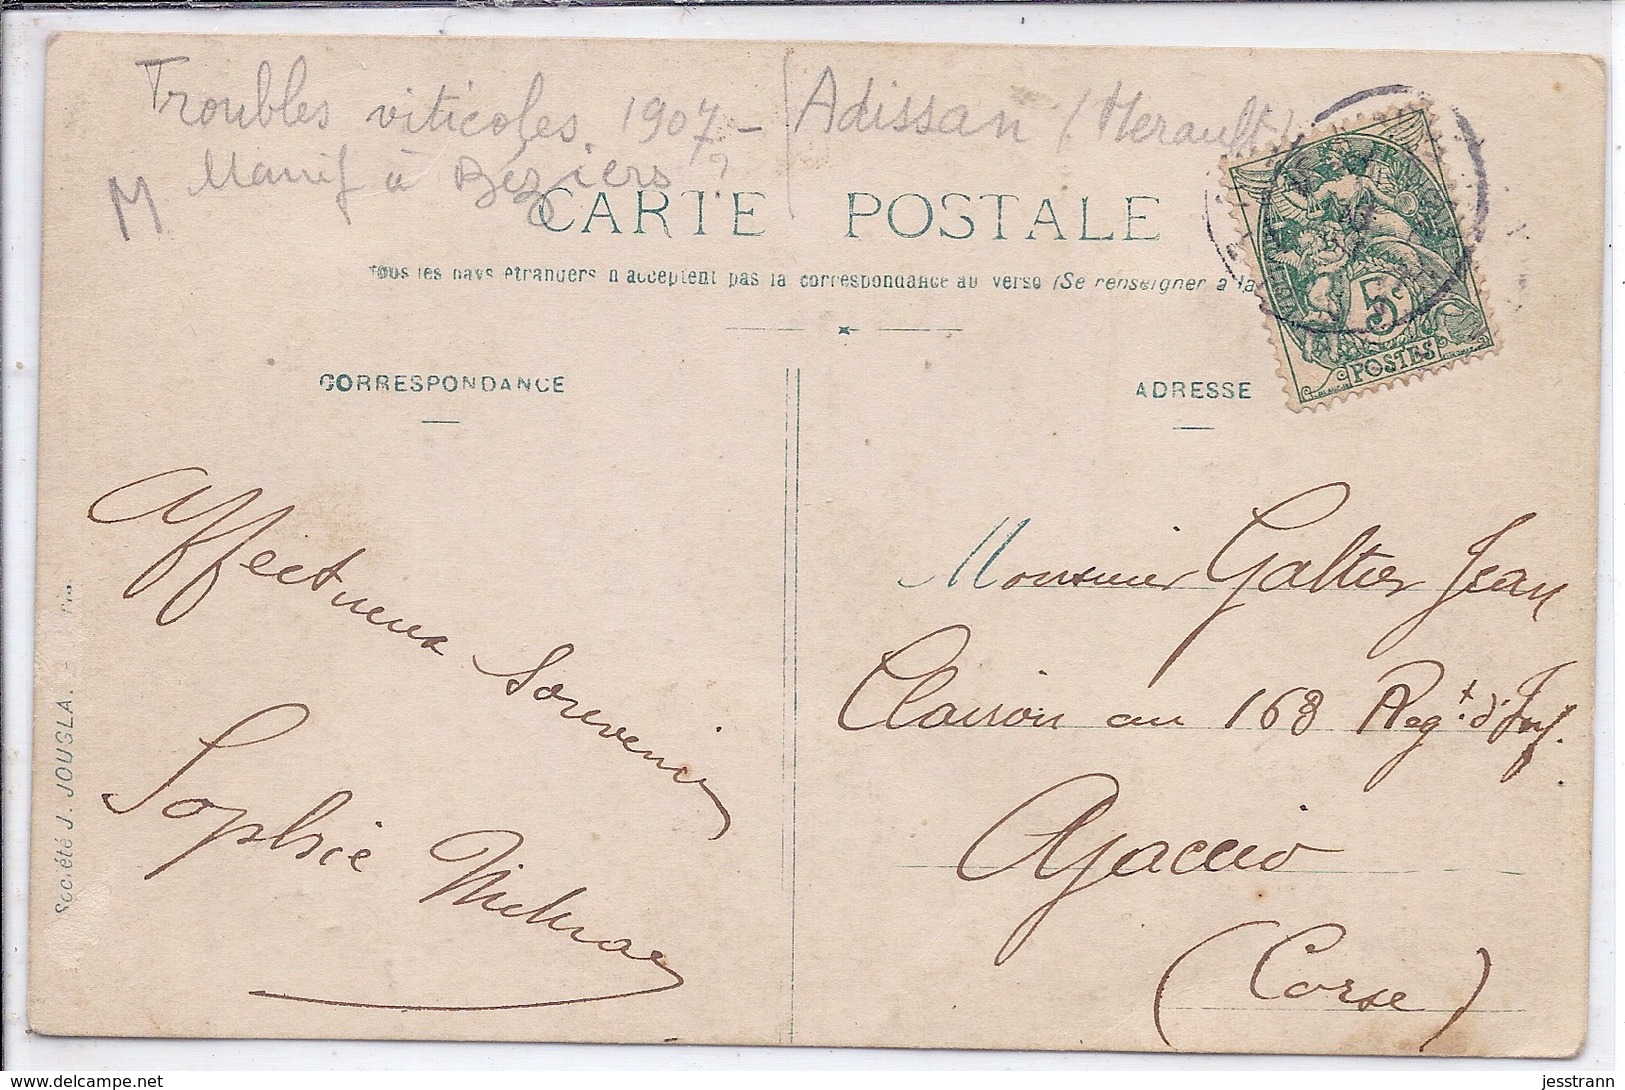 Troubles viticoles 1907 - Adissan (Herault)
Manif à Béziers ?
M
CARTE POSTALE
Tous les pays étrangers n'acceptent pas la correspondance au verso (Se renseigner à la
5c
POSTES
CORRESPONDANCE
ADRESSE
Affectueux
Souvenir
Sophie
Monsieur Galtier Jean
Clairon au 163 Reg.t d'Inf.
Ajaccio
(Corse)
Société J. JOUGLA. -
delcampe.net
jesstrann